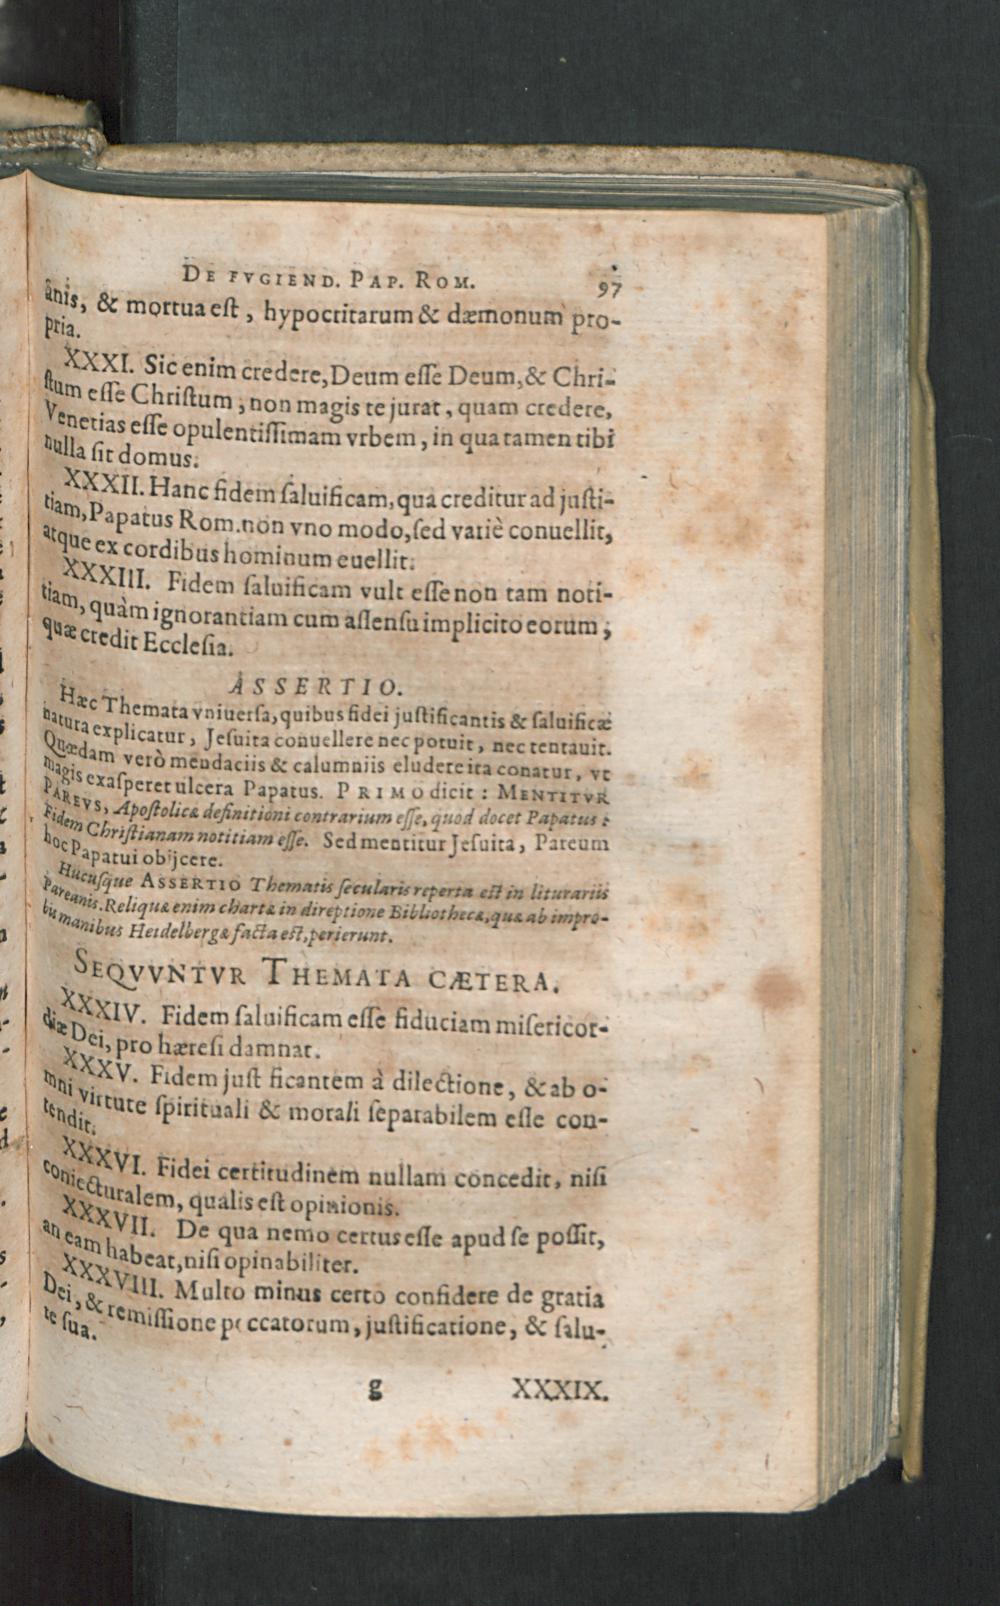 DE FVGIEND. PAP. ROM. 97
anis, & mortua est, hypocritarum & dæmonum pro-
pria.
XXXI. Sic enim credere, Deum esse Deum, & Chri-
stum esse Christum, non magis te jurat, quam credere,
Venetias esse opulentissimam vrbem, in qua tamen tibi
nulla sit domus.
XXXII. Hanc fidem saluificam, qua creditur ad justi-
tiam, Papatus Rom. non vno modo, sed variè conuellit,
atque ex cordibus hominum euellit.
XXXIII. Fidem saluificam vult esse non tam noti-
tiam, quàm ignorantiam cum assensu implicito eorum,
quæ credit Ecclesia.
ASSERTIO.
Hæc Themata vniuersa, quibus fidei justificantis & saluificæ
natura explicatur, Jesuita conuellere nec potuit, nec tentauit.
Quædam verò mendaciis & calumniis eludere ita conatur, vt
magis exasperet ulcera Papatus. PRIMO dicit: MENTITVR
PAREVS, Apostolicæ definitioni contrarium esse, quod docet Papatus:
Fidem Christianam notitiam esse. Sed mentitur Jesuita, Pareum
hoc Papatui obijcere.
Hucusque ASSERTIO Thematis secularis reperta est in liturariis
Pareanis. Reliquæ enim chartæ in direptione Bibliothecæ, quæ ab impro-
bis manibus Heidelbergæ facta est, perierunt.
SEQVVNTVR THEMATA CÆTERA.
XXXIV. Fidem saluificam esse fiduciam misericor-
diæ Dei, pro hæresi damnat.
XXXV. Fidem just ficantem à dilectione, & ab o-
mni virtute spirituali & morali separabilem esse con-
tendit.
XXXVI. Fidei certitudinem nullam concedit, nisi
coniecturalem, qualis est opinionis.
XXXVII. De qua nemo certus esse apud se possit,
an eam habeat, nisi opinabiliter.
XXXVIII. Multo minus certo confidere de gratia
Dei, & remissione peccatorum, justificatione, & salu-
te sua.
g XXXIX.